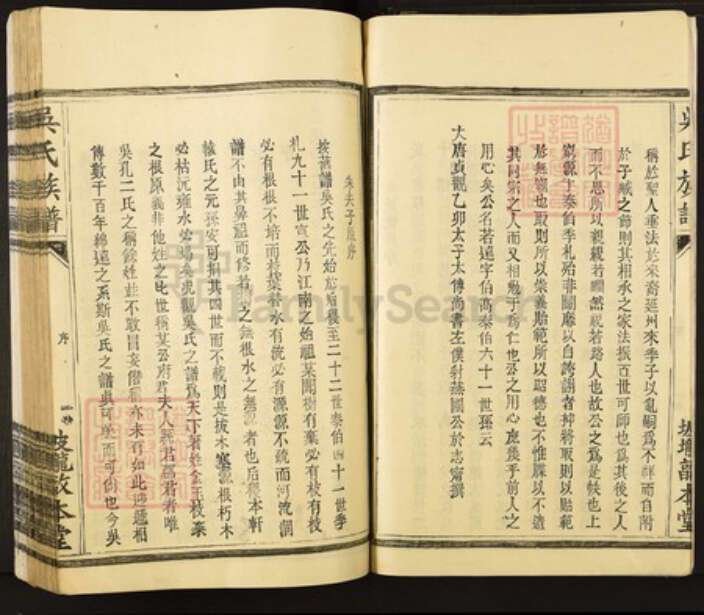 吳氏族譜
稱於聖人垂法於來裔延州來季子以亂嗣為不祥而自附
於子臧之節則其相承之家法振百世可師也為其後之人
而不思所以親親若罔然視若路人也故公之為是帙也上
窮源於泰伯季札殆非闢靡以自誇謝者抑將取則以貽範
於無窮也取則所以崇義貽範所以昭德也不惟牒以不遺
其同宗之人而又相勉于為仁也公之用心庶幾乎前人之
用心矣公名若達字伯高泰伯六十一世孫云
大唐貞觀乙卯太子太傅尚書左僕射燕國公於志甯撰
朱夫子原序
按舊譜吳氏之先始於后稷至二十二世泰伯四十一世季
札九十一世宣公乃江南之始祖某聞樹有葉必有枝有枝
必有根根不培而枝葉替水有流必有源源不疏而河沈涸
譜不由其鼻祖而修若樹之無根水之無源者也后稷本軒
轅氏之元孫安可損其四世而不載則是拔木塞源根朽木
必枯沅雍水必竭矣虎觀吳氏之譜為天下著姓金玉枝葉
之根原義非他姓之比世稱某公府君夫人孺君為君者唯
吳孔二氏之稱餘姓並不敢冒妄僭稱亦未有如此遞遞相
傳數千百年綿遠之系斯吳氏之譜真可樂而可尚也今吳
吳氏族譜
序
一卷
敦本堂
敦本堂
FamilySearch